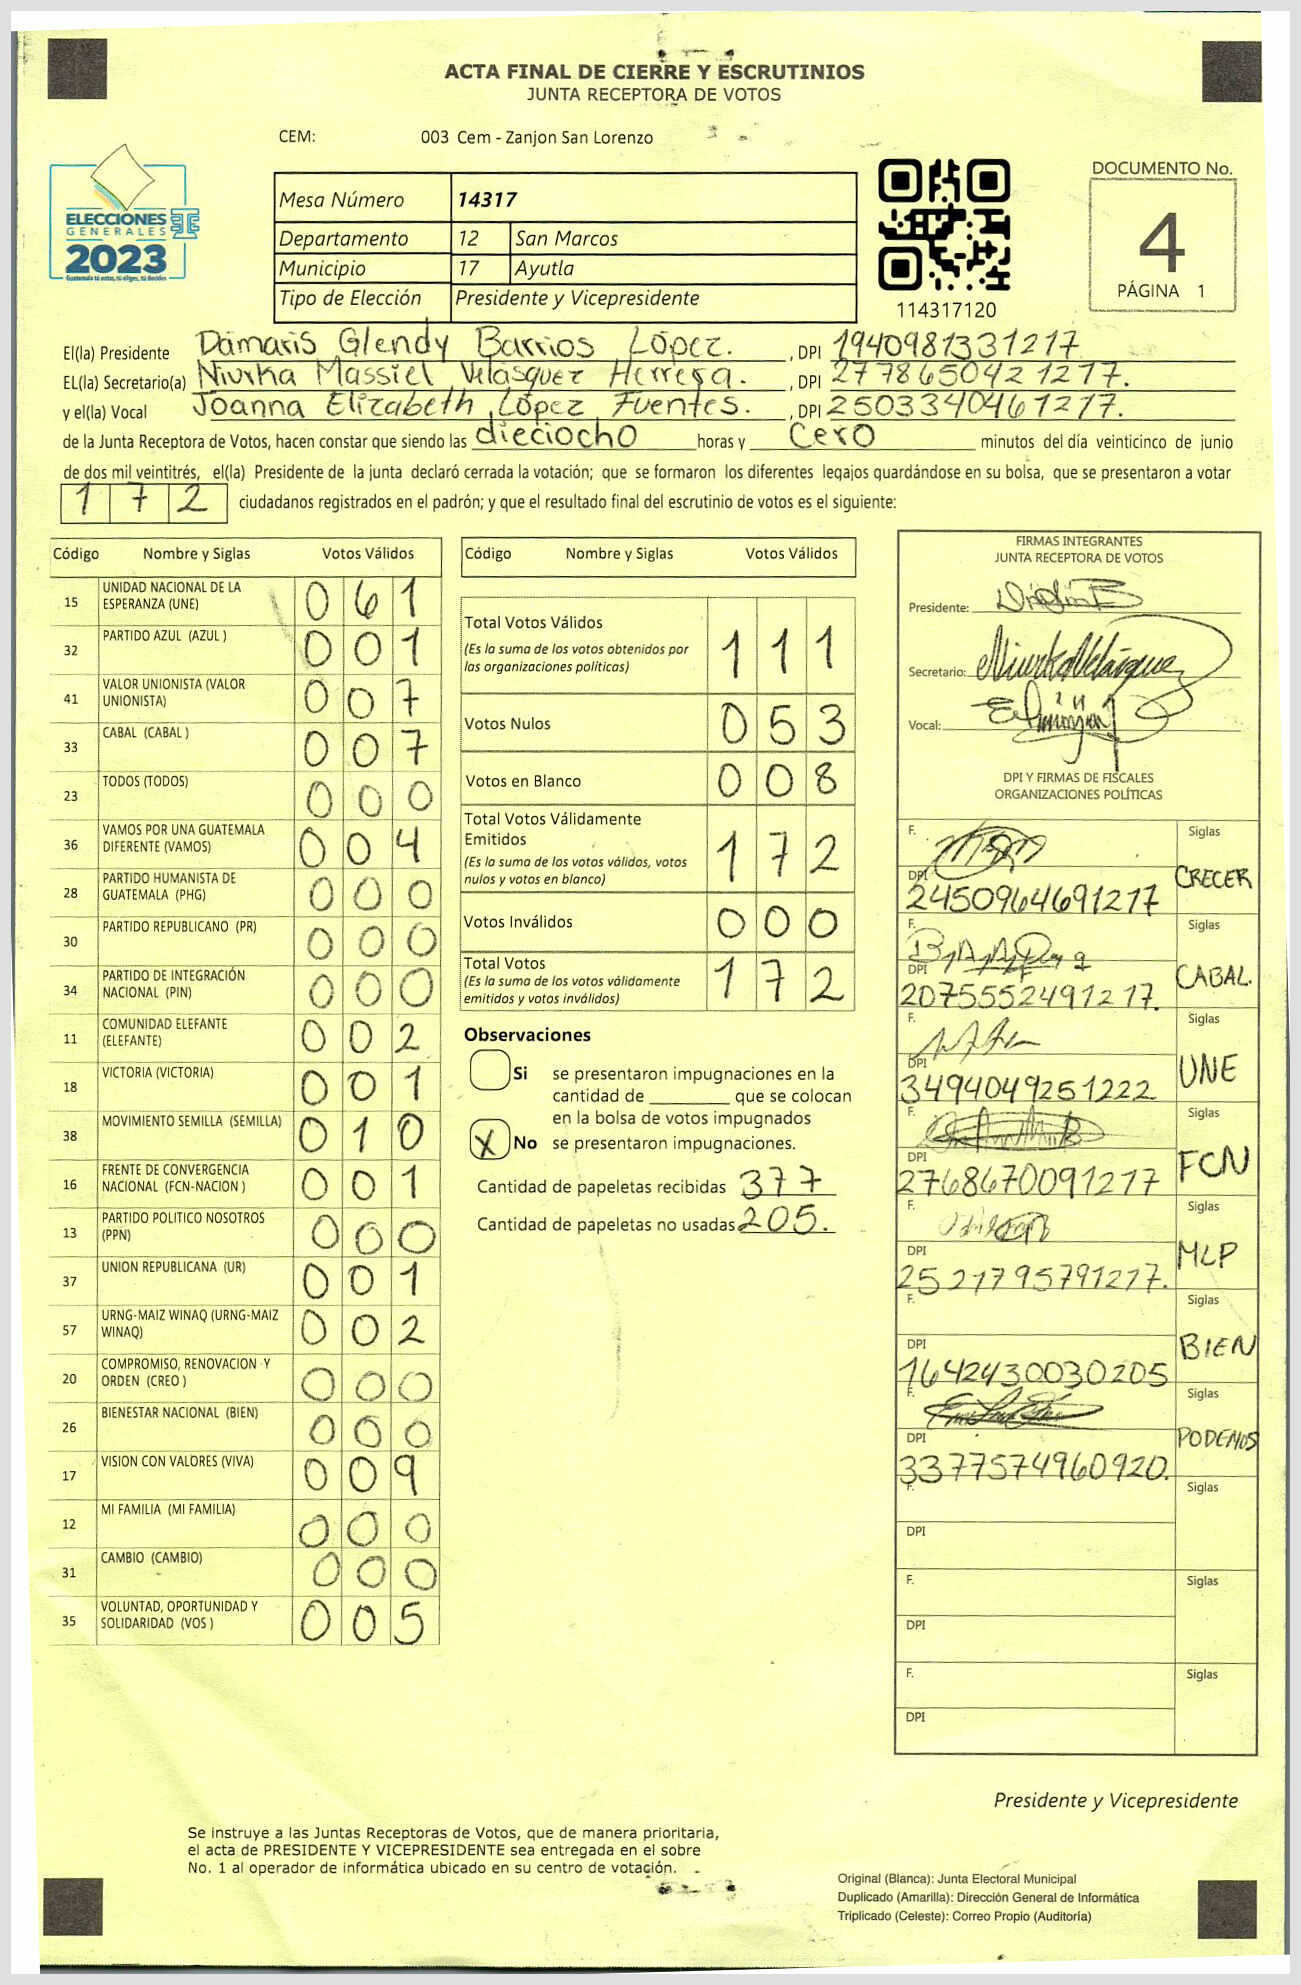 ACTA FINAL DE CIERRE Y ESCRUTINIOS
JUNTA RECEPTORA DE VOTOS
CEM: 003 Cem - Zanjon San Lorenzo
ELECCIONES
GENERALES
2023
Guatemala tú votas, tú eliges, tú decides
Mesa Número 14317
Departamento 12 San Marcos
Municipio 17 Ayutla
Tipo de Elección Presidente y Vicepresidente
114317120
DOCUMENTO No.
4
PÁGINA 1
El(la) Presidente Dámaris Glendy Barrios López. , DPI 1940981331217
EL(la) Secretario(a) Niurka Massiel Velásquez Herrera. , DPI 2778650421217.
y el(la) Vocal Joanna Elizabeth López Fuentes. , DPI 2503340461217.
de la Junta Receptora de Votos, hacen constar que siendo las dieciocho horas y cero minutos del día veinticinco de junio
de dos mil veintitrés, el(la) Presidente de la junta declaró cerrada la votación; que se formaron los diferentes legajos guardándose en su bolsa, que se presentaron a votar
172 ciudadanos registrados en el padrón; y que el resultado final del escrutinio de votos es el siguiente:
Código Nombre y Siglas Votos Válidos
15 UNIDAD NACIONAL DE LA ESPERANZA (UNE) 061
32 PARTIDO AZUL (AZUL ) 001
41 VALOR UNIONISTA (VALOR UNIONISTA) 007
33 CABAL (CABAL ) 007
23 TODOS (TODOS) 000
36 VAMOS POR UNA GUATEMALA DIFERENTE (VAMOS) 004
28 PARTIDO HUMANISTA DE GUATEMALA (PHG) 000
30 PARTIDO REPUBLICANO (PR) 000
34 PARTIDO DE INTEGRACIÓN NACIONAL (PIN) 000
11 COMUNIDAD ELEFANTE (ELEFANTE) 002
18 VICTORIA (VICTORIA) 001
38 MOVIMIENTO SEMILLA (SEMILLA) 010
16 FRENTE DE CONVERGENCIA NACIONAL (FCN-NACION ) 001
13 PARTIDO POLITICO NOSOTROS (PPN) 000
37 UNION REPUBLICANA (UR) 001
57 URNG-MAIZ WINAQ (URNG-MAIZ WINAQ) 002
20 COMPROMISO, RENOVACION Y ORDEN (CREO ) 000
26 BIENESTAR NACIONAL (BIEN) 000
17 VISION CON VALORES (VIVA) 009
12 MI FAMILIA (MI FAMILIA) 000
31 CAMBIO (CAMBIO) 000
35 VOLUNTAD, OPORTUNIDAD Y SOLIDARIDAD (VOS ) 005
Código Nombre y Siglas Votos Válidos
Total Votos Válidos 111
(Es la suma de los votos obtenidos por
las organizaciones políticas)
Votos Nulos 053
Votos en Blanco 008
Total Votos Válidamente
Emitidos 172
(Es la suma de los votos válidos, votos
nulos y votos en blanco)
Votos Inválidos 000
Total Votos 172
(Es la suma de los votos válidamente
emitidos y votos inválidos)
Observaciones
Si se presentaron impugnaciones en la
cantidad de ________ que se colocan
en la bolsa de votos impugnados
X No se presentaron impugnaciones.
Cantidad de papeletas recibidas 377
Cantidad de papeletas no usadas 205.
FIRMAS INTEGRANTES
JUNTA RECEPTORA DE VOTOS
Presidente:
Secretario: Niurka Velásquez
Vocal:
DPI Y FIRMAS DE FISCALES
ORGANIZACIONES POLÍTICAS
F. Siglas
DPI 2450964691217 CRECER
F. Siglas
DPI 2075552491217. CABAL.
F. Siglas
DPI 3494049251222 UNE
F. Siglas
DPI 2768670091217 FCN
F. Siglas
DPI 2521795791217. MLP
F. Siglas
DPI 1642430030205 BIEN
F. Siglas
DPI 3377574960920. PODEMOS
F. Siglas
DPI
F. Siglas
DPI
F. Siglas
DPI
Presidente y Vicepresidente
Se instruye a las Juntas Receptoras de Votos, que de manera prioritaria,
el acta de PRESIDENTE Y VICEPRESIDENTE sea entregada en el sobre
No. 1 al operador de informática ubicado en su centro de votación.
Original (Blanca): Junta Electoral Municipal
Duplicado (Amarilla): Dirección General de Informática
Triplicado (Celeste): Correo Propio (Auditoría)